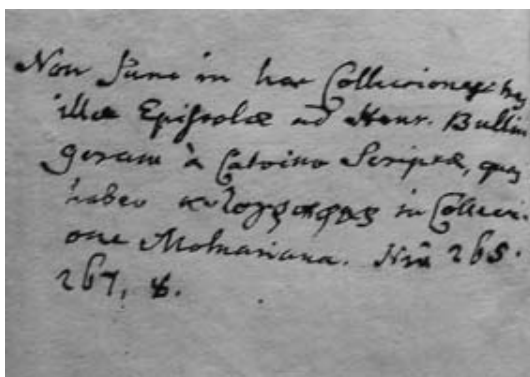 Non sunt in hac Collectione
illæ Epistolæ ad Henr. Bullin
gerum à Calvino Scriptæ, quas
habeo αυτογραφας in Collecti
one Molnariana. 265.
267, &.